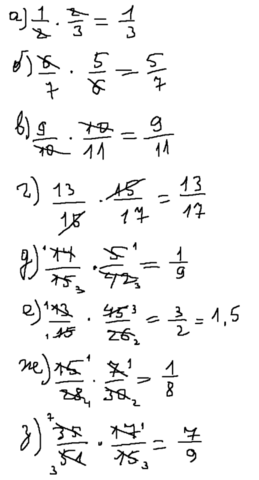 а) 1/2 · 2/3 = 1/3
б) 6/7 · 5/6 = 5/7
в) 9/10 · 10/11 = 9/11
г) 13/15 · 15/17 = 13/17
д) 14/15 · 5/42 = 1/9
е) 13/15 · 45/26 = 3/2 = 1,5
ж) 15/28 · 7/30 = 1/8
з) 35/51 · 17/15 = 7/9